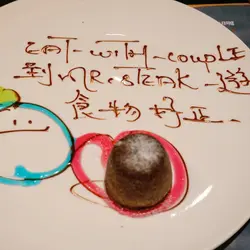 EAT-WITH-COUPLE
到MR.STEAK-
食物好正.